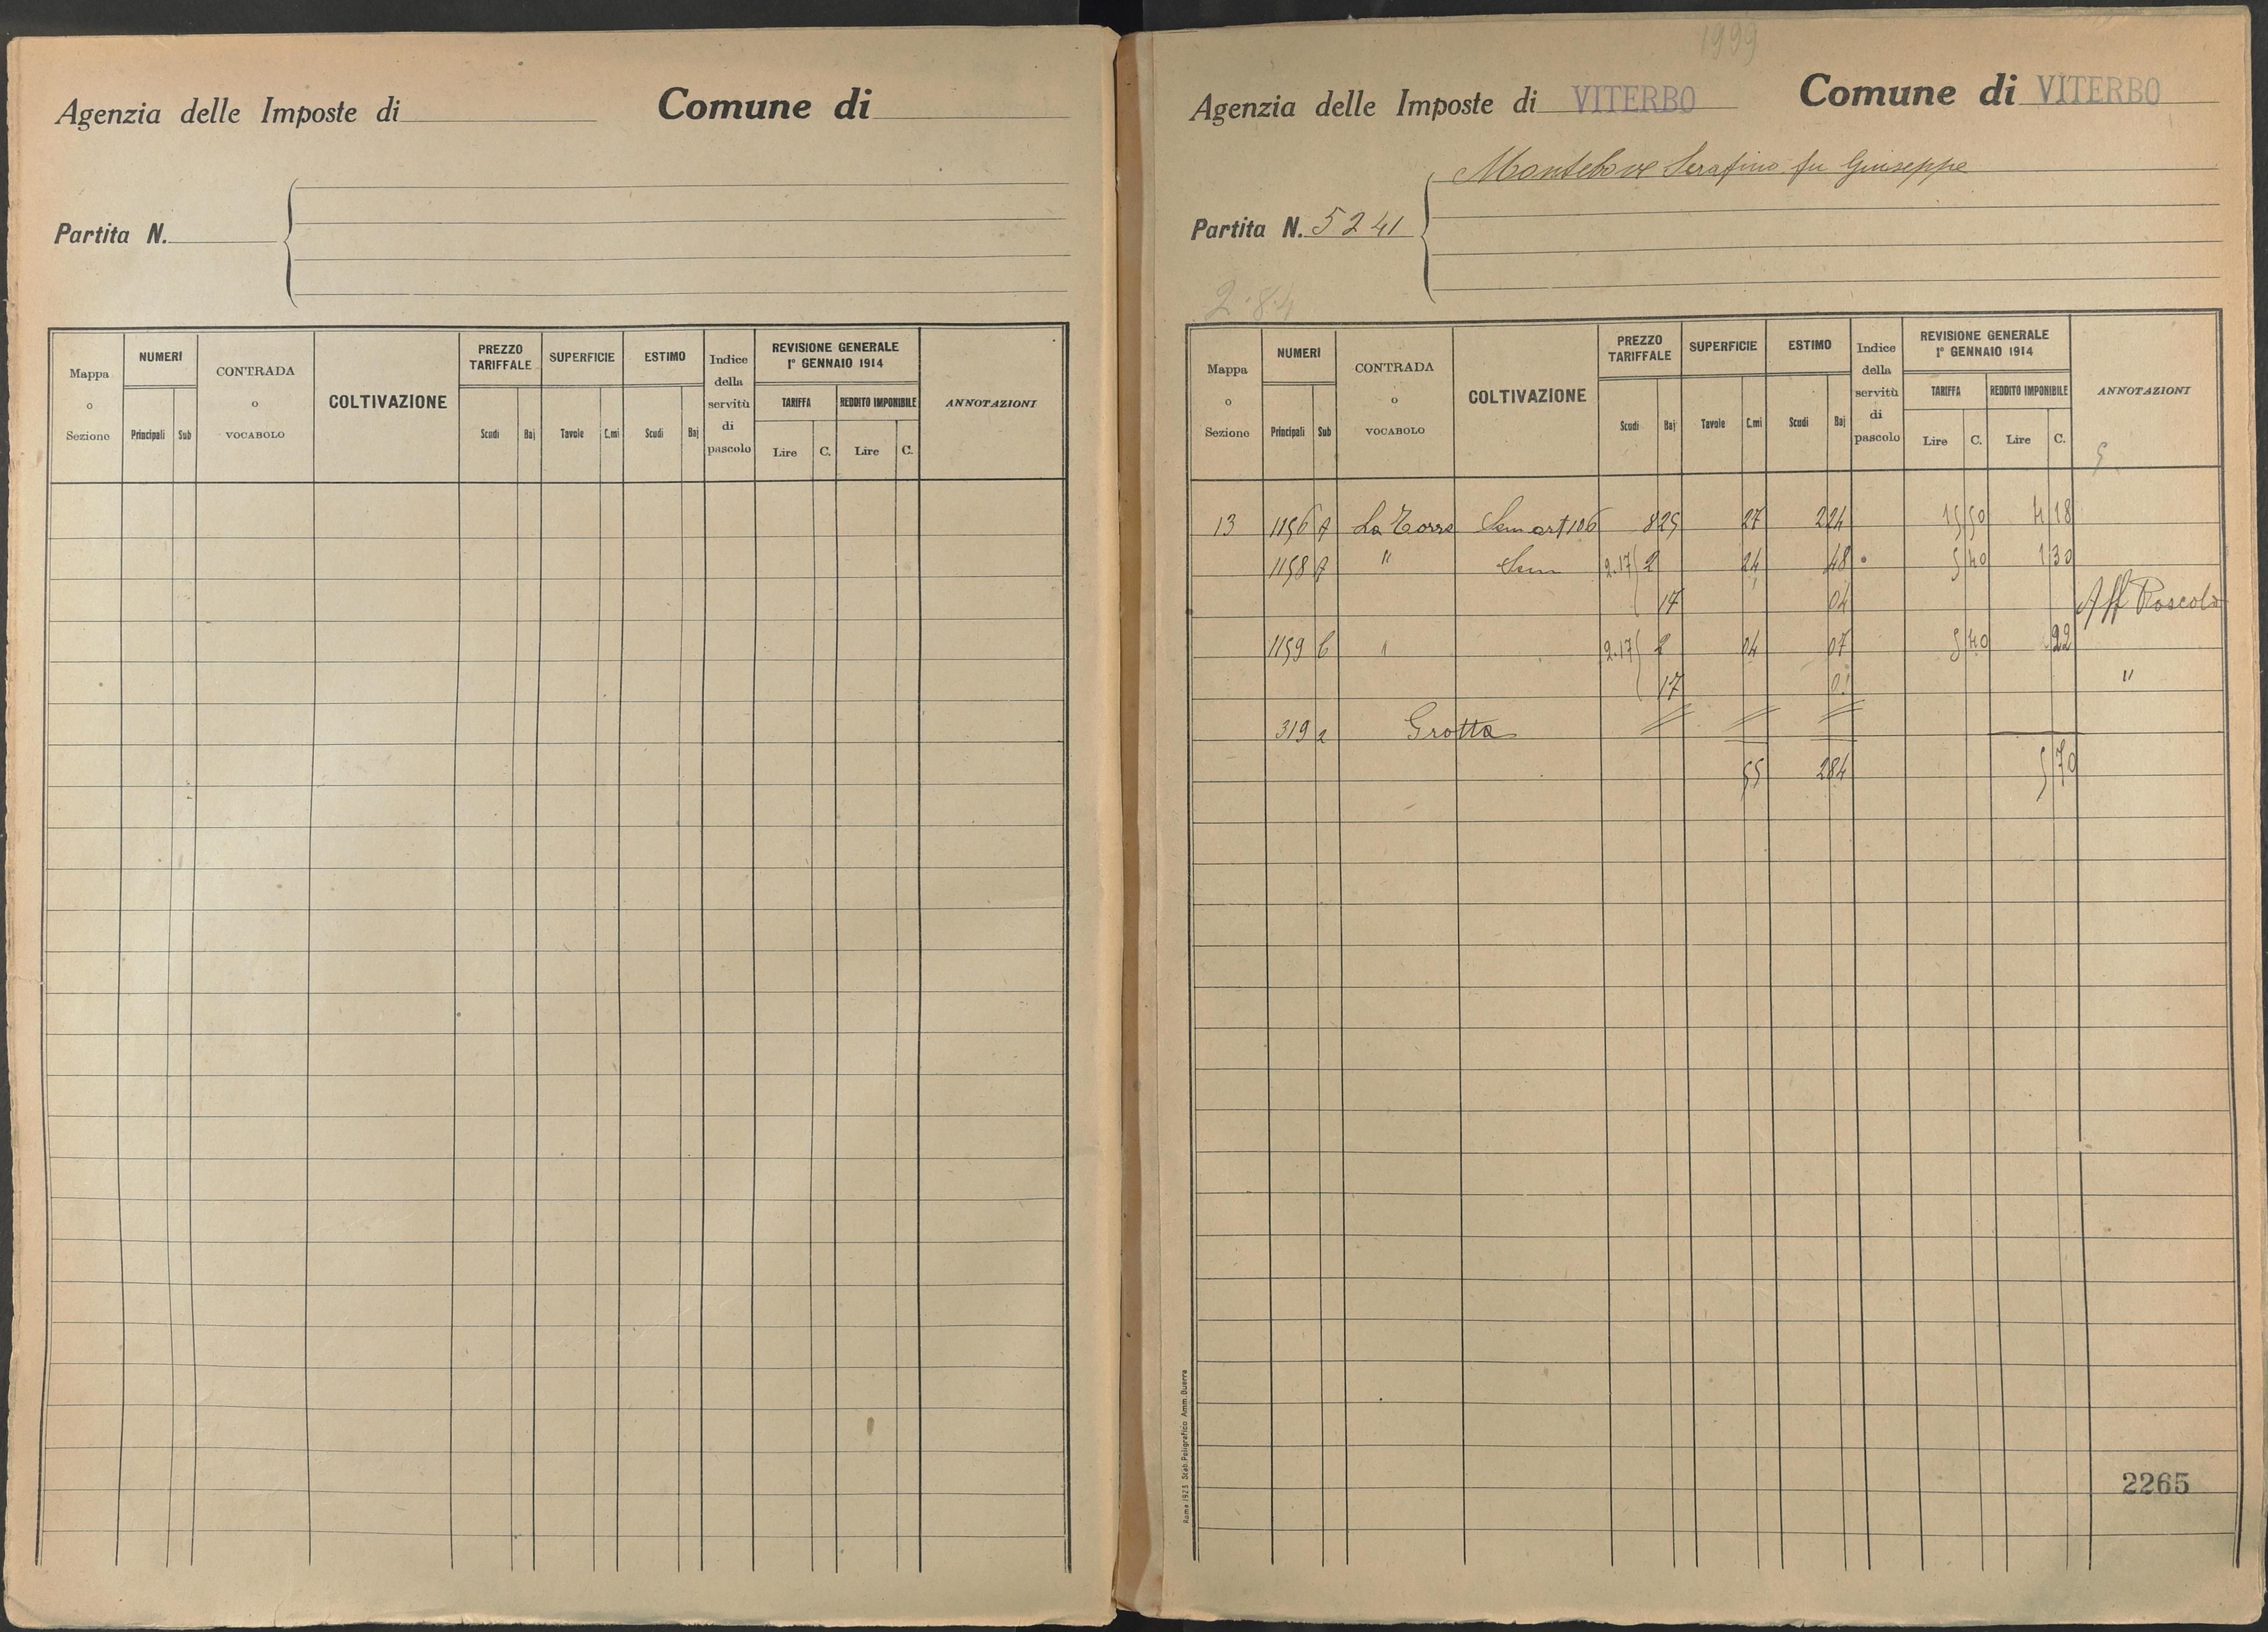 Agenzia delle Imposte di Comune di
Partita N.
Mappa o Sezione NUMERI Principali Sub CONTRADA o VOCABOLO COLTIVAZIONE PREZZO TARIFFALE Scudi Baj SUPERFICIE Tavole C.mi ESTIMO Scudi Baj Indice della servitù di pascolo REVISIONE GENERALE 1° GENNAIO 1914 TARIFFA Lire C. REDDITO IMPONIBILE Lire C. ANNOTAZIONI
1999
Agenzia delle Imposte di VITERBO Comune di VITERBO
Montebove Serafino fu Giuseppe
Partita N. 5241
2.84
Mappa o Sezione NUMERI Principali Sub CONTRADA o VOCABOLO COLTIVAZIONE PREZZO TARIFFALE Scudi Baj SUPERFICIE Tavole C.mi ESTIMO Scudi Baj Indice della servitù di pascolo REVISIONE GENERALE 1° GENNAIO 1914 TARIFFA Lire C. REDDITO IMPONIBILE Lire C. ANNOTAZIONI
13 1156 La Torre Sem art 106 8 25 27 2 24 15 50 4 18
1158 " Sem 2.17 2 24 48 5 40 1 30
17 04 Aff Pascolo
1159 " 2.17 2 04 07 5 40 22
17 01 "
319 2 Grotta
55 2 84 5 70
2265
Roma 1923 Stab. Poligrafico Amm. Guerra